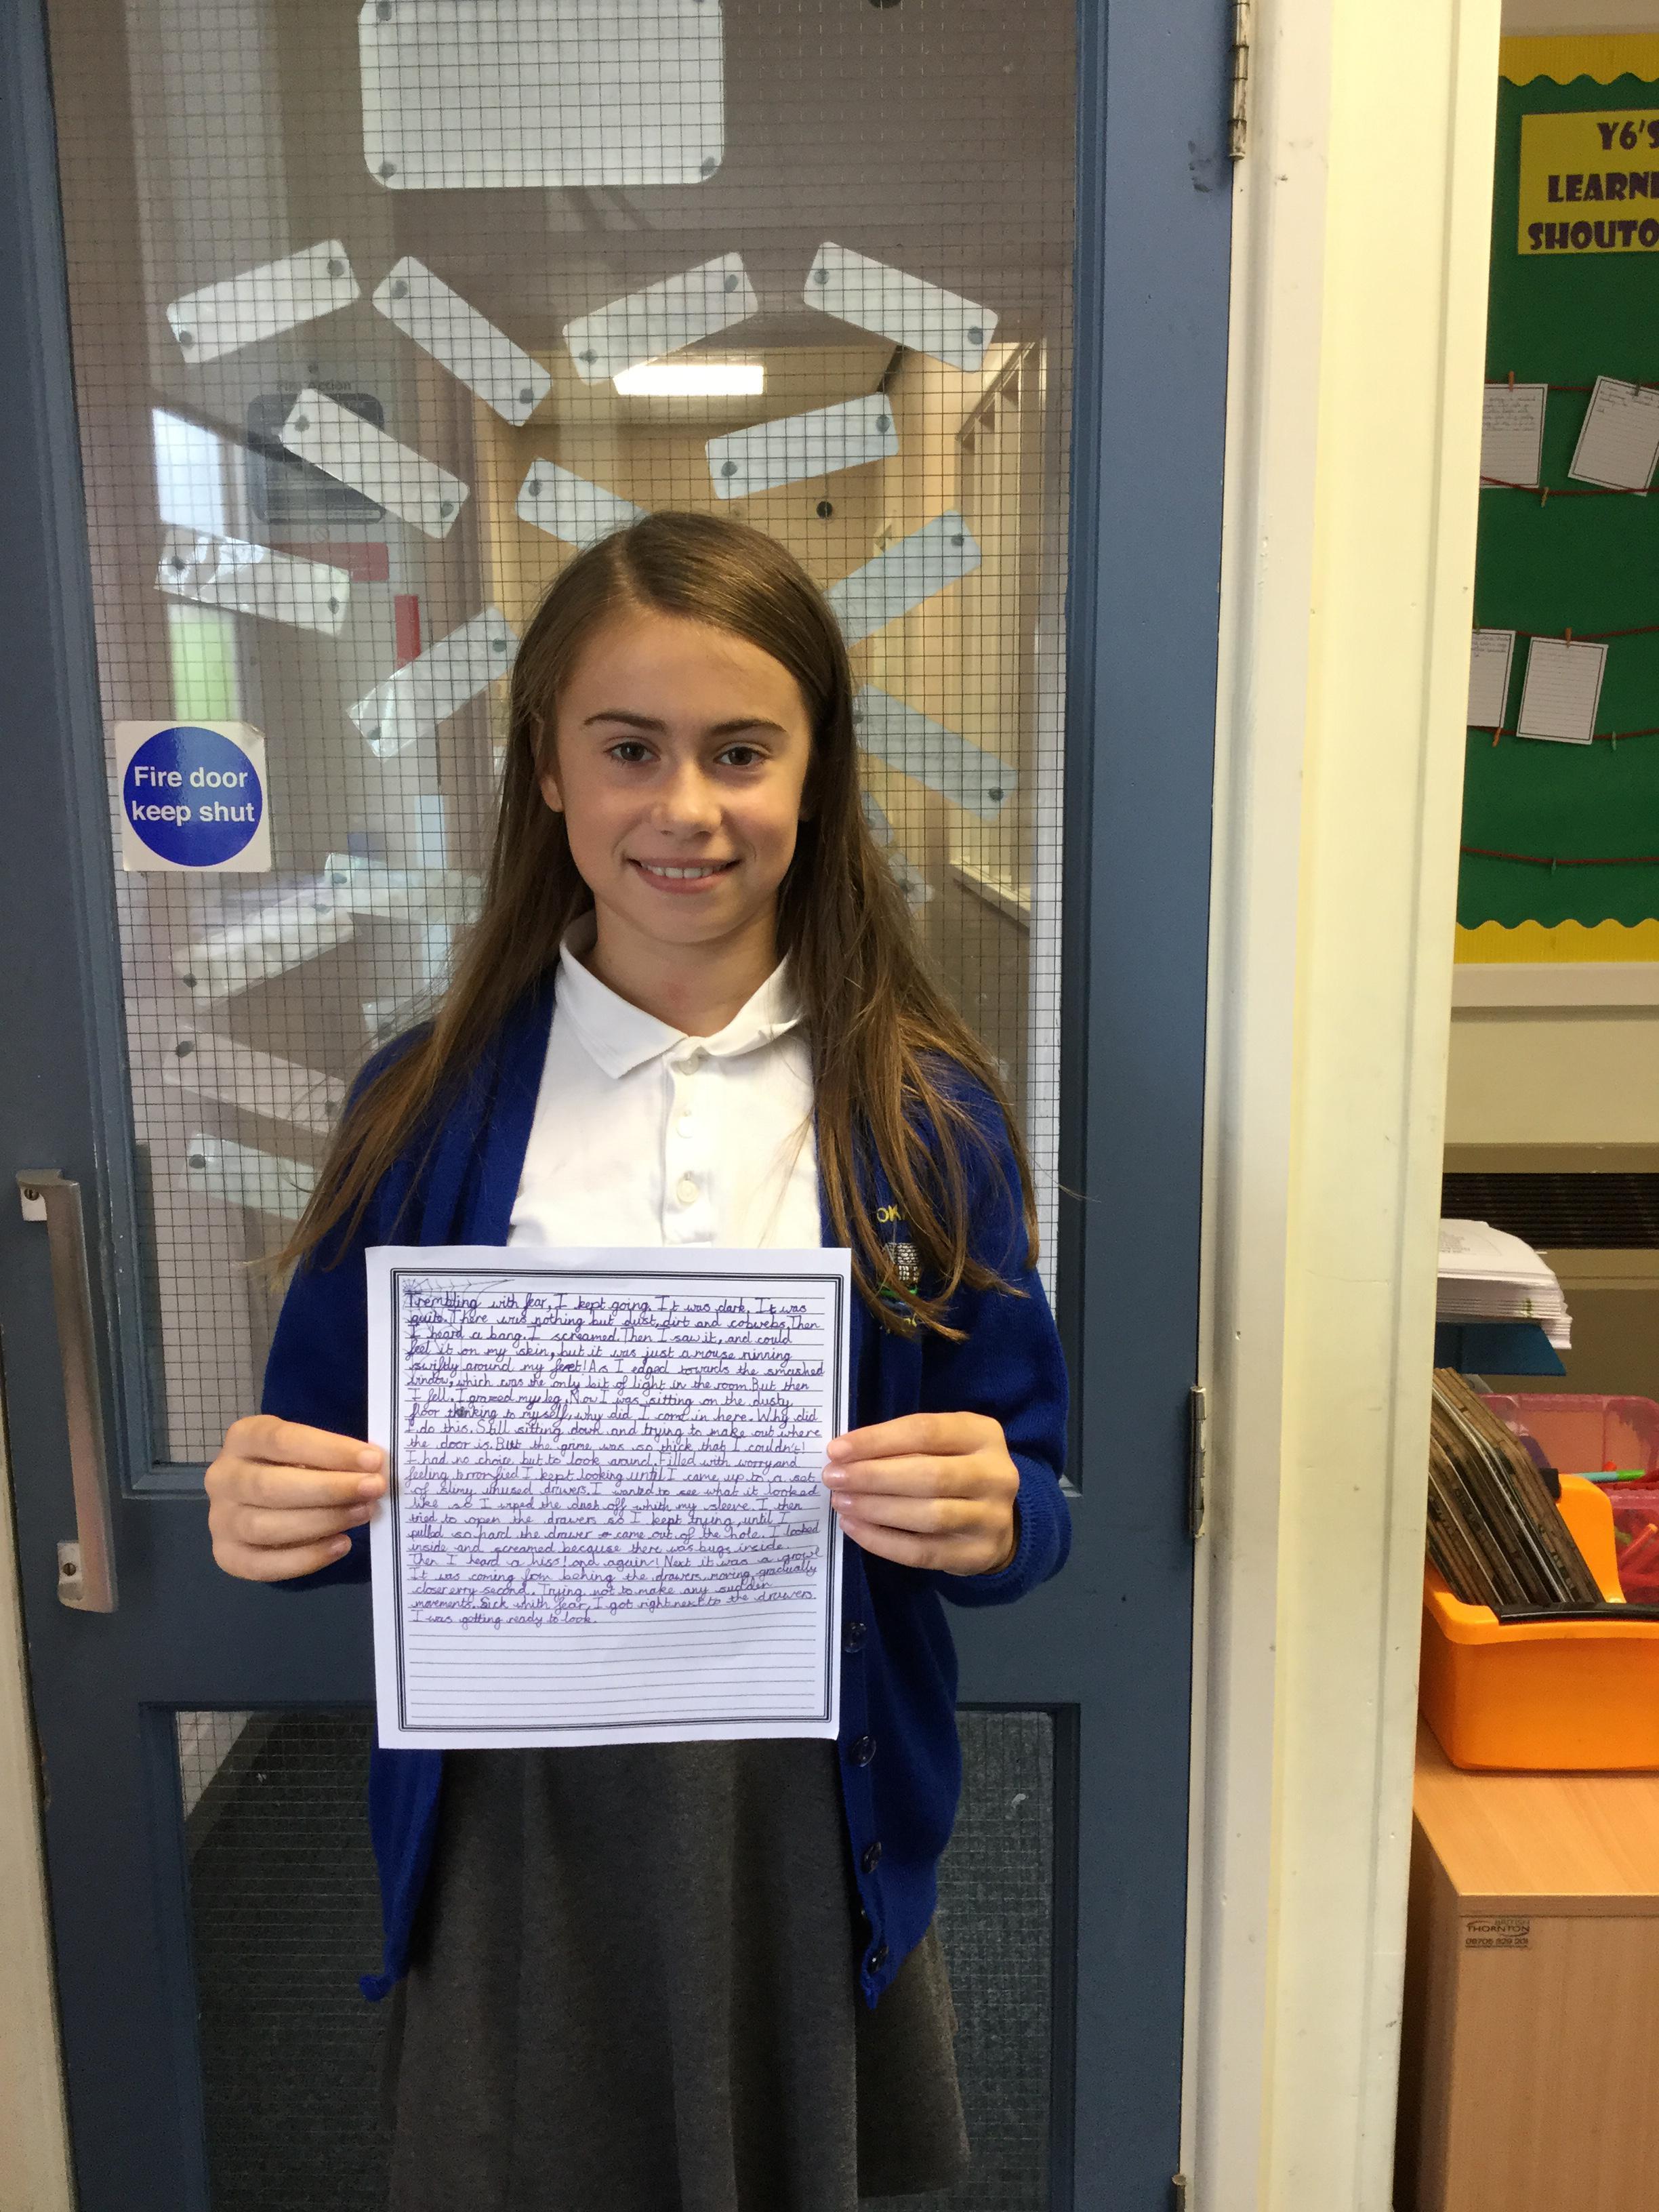 Fire Action
Y6'S
LEARNI
SHOUTO
Fire door
keep shut
OK
Trembling with fear, I kept going. It was dark. It was
quite. There was nothing but dust, dirt and cobwebs. Then
I heard a bang. I screamed. Then I saw it, and could
feel it on my skin, but it was just a mouse running
swiftly around my feet! As I edged towards the smashed
window, which was the only bit of light in the room. But then
I fell. I grazed my leg. Now I was sitting on the dusty
floor thinking to myself, why did I come in here. Why did
I do this. Still sitting down and trying to make out where
the door is. But the grime was so thick that I couldn't!
I had no choice but to look around. Filled with worry and
feeling terrorfied I kept looking until I came up to a set
of slimy unused drawers. I wanted to see what it looked
like so I wiped the dust off which my sleeve. I then
tried to open the drawers so I kept trying, until I
pulled so hard the drawer came out of the hole. I looked
inside and screamed because there was bugs inside.
Then I heard a hiss! and again! Next it was a growl
It was coming from behing the drawers, moving gradually
closer erry second. Trying not to make any sudden
movements. Sick with fear, I got right next to the drawers.
I was getting ready to look.
BRITISH
THORNTON